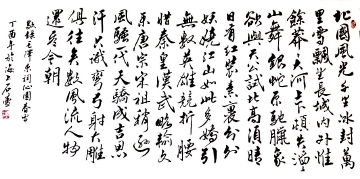 北國風光千里冰封萬
里雪飄望長城內外惟
餘莽莽大河上下頓失滔滔
山舞銀蛇原馳臘象
欲與天公試比高須晴
日看紅裝素裹分外
妖嬈江山如此多嬌引
無數英雄競折腰
惜秦皇漢武略輸文
采唐宗宋祖稍遜
風騷一代天驕成吉思
汗只識彎弓射大雕
俱往矣數風流人物
還看今朝
錄毛澤東詞沁園春雪
丁酉年於海